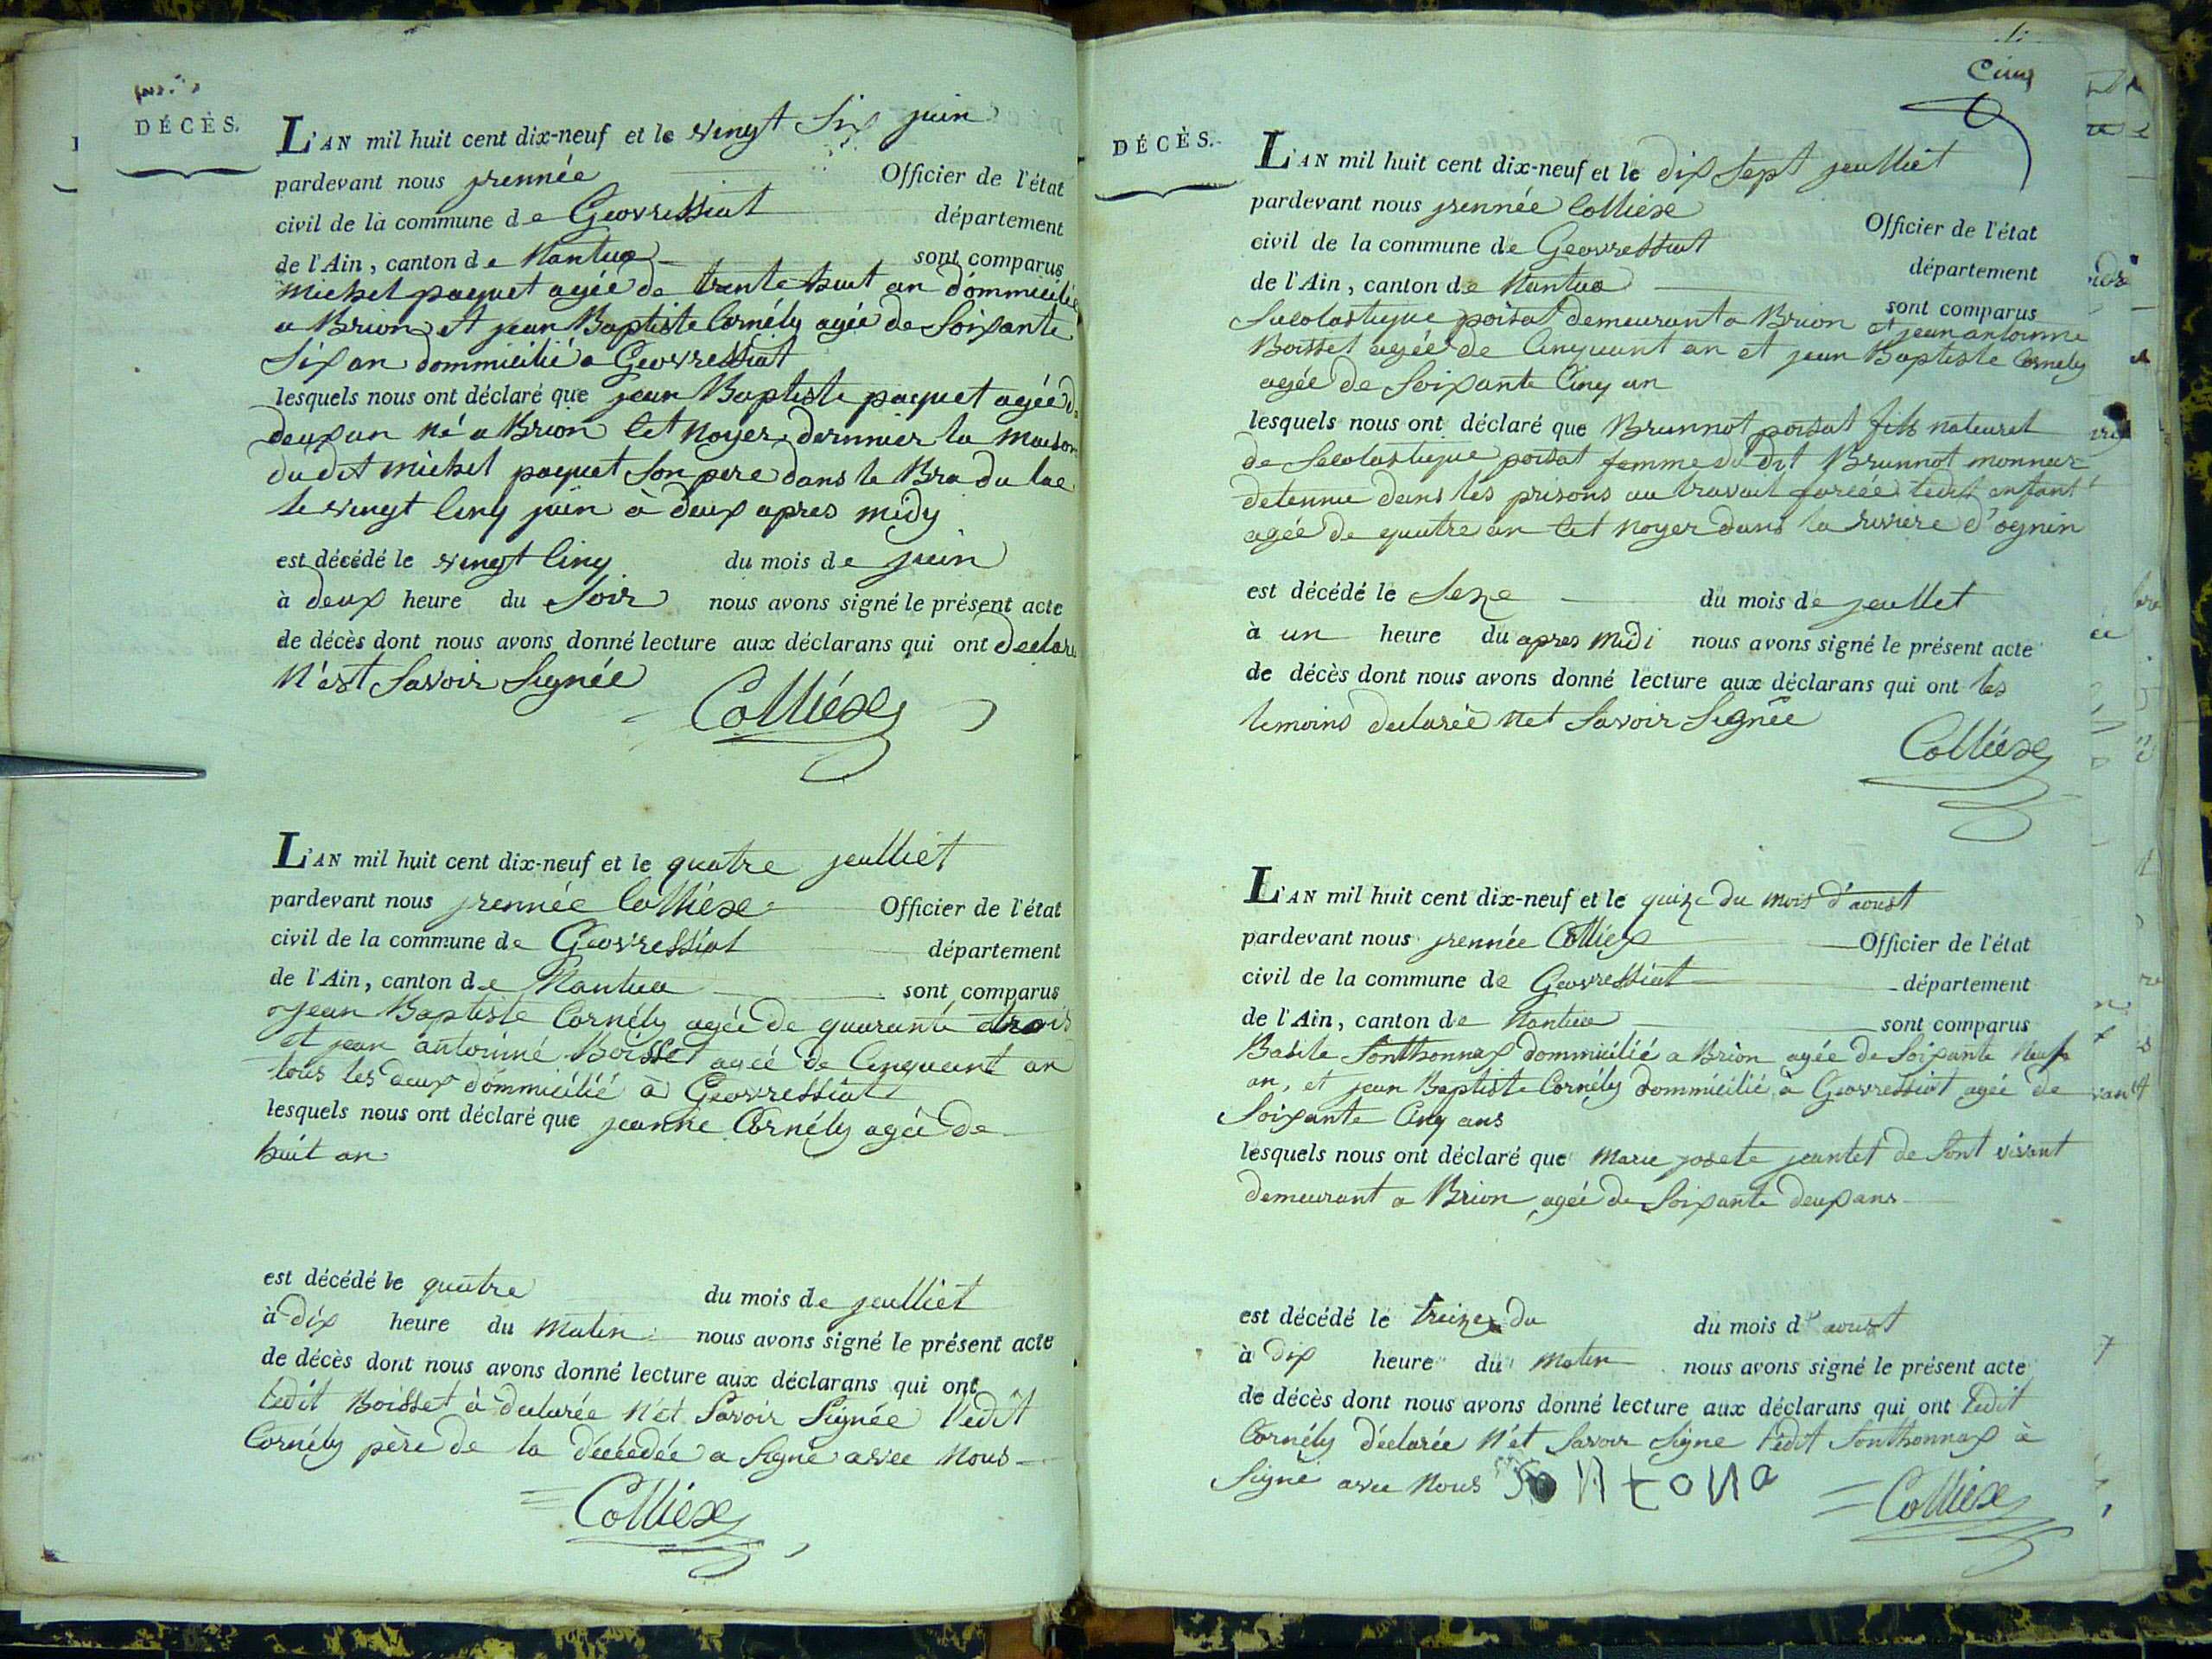 DÉCÈS.
L'AN mil huit cent dix-neuf et le vingt Six juin
pardevant nous jrennée Officier de l'état
civil de la commune de Geovressiat département
de l'Ain, canton de Nantua sont comparus
Michel paquet agée de trente huit an dommicilié
a Brion et jean Baptiste Cornély agée de Soixante
Six an dommicilié a Geovressiat
lesquels nous ont déclaré que jean Baptiste paquet agée de
deux an né a Brion cet noyer dernnier la maison
du dit Michel paquet Son pere dans le Bra du lac
le vingt Cinq juin à deux apres midy
est décédé le vingt Cinq du mois de juin
à deux heure du Soir nous avons signé le présent acte
de décès dont nous avons donné lecture aux déclarans qui ont declaré
N'est Savoir Signée
Colliéx
L'AN mil huit cent dix-neuf et le quatre jeulliet
pardevant nous jrennée Colliéx Officier de l'état
civil de la commune de Geovressiat département
de l'Ain, canton de Nantua sont comparus
jean Baptiste Cornély agée de quarante trois
et jean antoinne Boisset agée de Cinquant an
tous les deux dommicilié a Geovressiat
lesquels nous ont déclaré que jeanne Cornély agée de
huit an
est décédé le quatre du mois de jeulliet
à dix heure du Matin nous avons signé le présent acte
de décès dont nous avons donné lecture aux déclarans qui ont
ledit Boisset à declarée N'et Savoir Signée ledit
Cornély père de la décédée a Signé avec Nous
Colliex
Cinq
DÉCÈS.
L'AN mil huit cent dix-neuf et le dix Sept jeulliet
pardevant nous jrennée Colliéx Officier de l'état
civil de la commune de Geovressiat département
de l'Ain, canton de Nantua sont comparus
Sucolastique poisat demeurant a Brion et jean antoinne
Boisset agée de Cinquant an et jean Baptiste Cornely
agée de Soixante Cinq an
lesquels nous ont déclaré que Brunnot poisat fils naturel
de Secolastique poisat femme du dit Brunnot monneur
detennu dans les prisons au travail forcée ledit enfant
agée de quatre an cet noyer dans la riviere d'ognin
est décédé le Seze du mois de jeullet
à un heure du apres Midi nous avons signé le présent acte
de décès dont nous avons donné lecture aux déclarans qui ont les
temoins declarée Net Savoir Signée
Colliéx
L'AN mil huit cent dix-neuf et le quize du mois d'aoust
pardevant nous jrennée Colliex Officier de l'état
civil de la commune de Geovressiat département
de l'Ain, canton de Nantua sont comparus
Basile Sonthonnax dommicilié a Brion agée de Soixante Neuf
an, et jean Baptiste Cornély dommicilié à Geovressiat agée de
Soixante Cinq ans
lesquels nous ont déclaré que Marie josete jeantet de Sont vivant
demeurant a Brion agée de Soixante deux ans
est décédé le treize du du mois d' aoust
à dix heure du Matin nous avons signé le présent acte
de décès dont nous avons donné lecture aux déclarans qui ont ledit
Cornély déclarée N'et Savoir Signe ledit Sonthonnax à
Signé avec Nous Sontona
Colliex